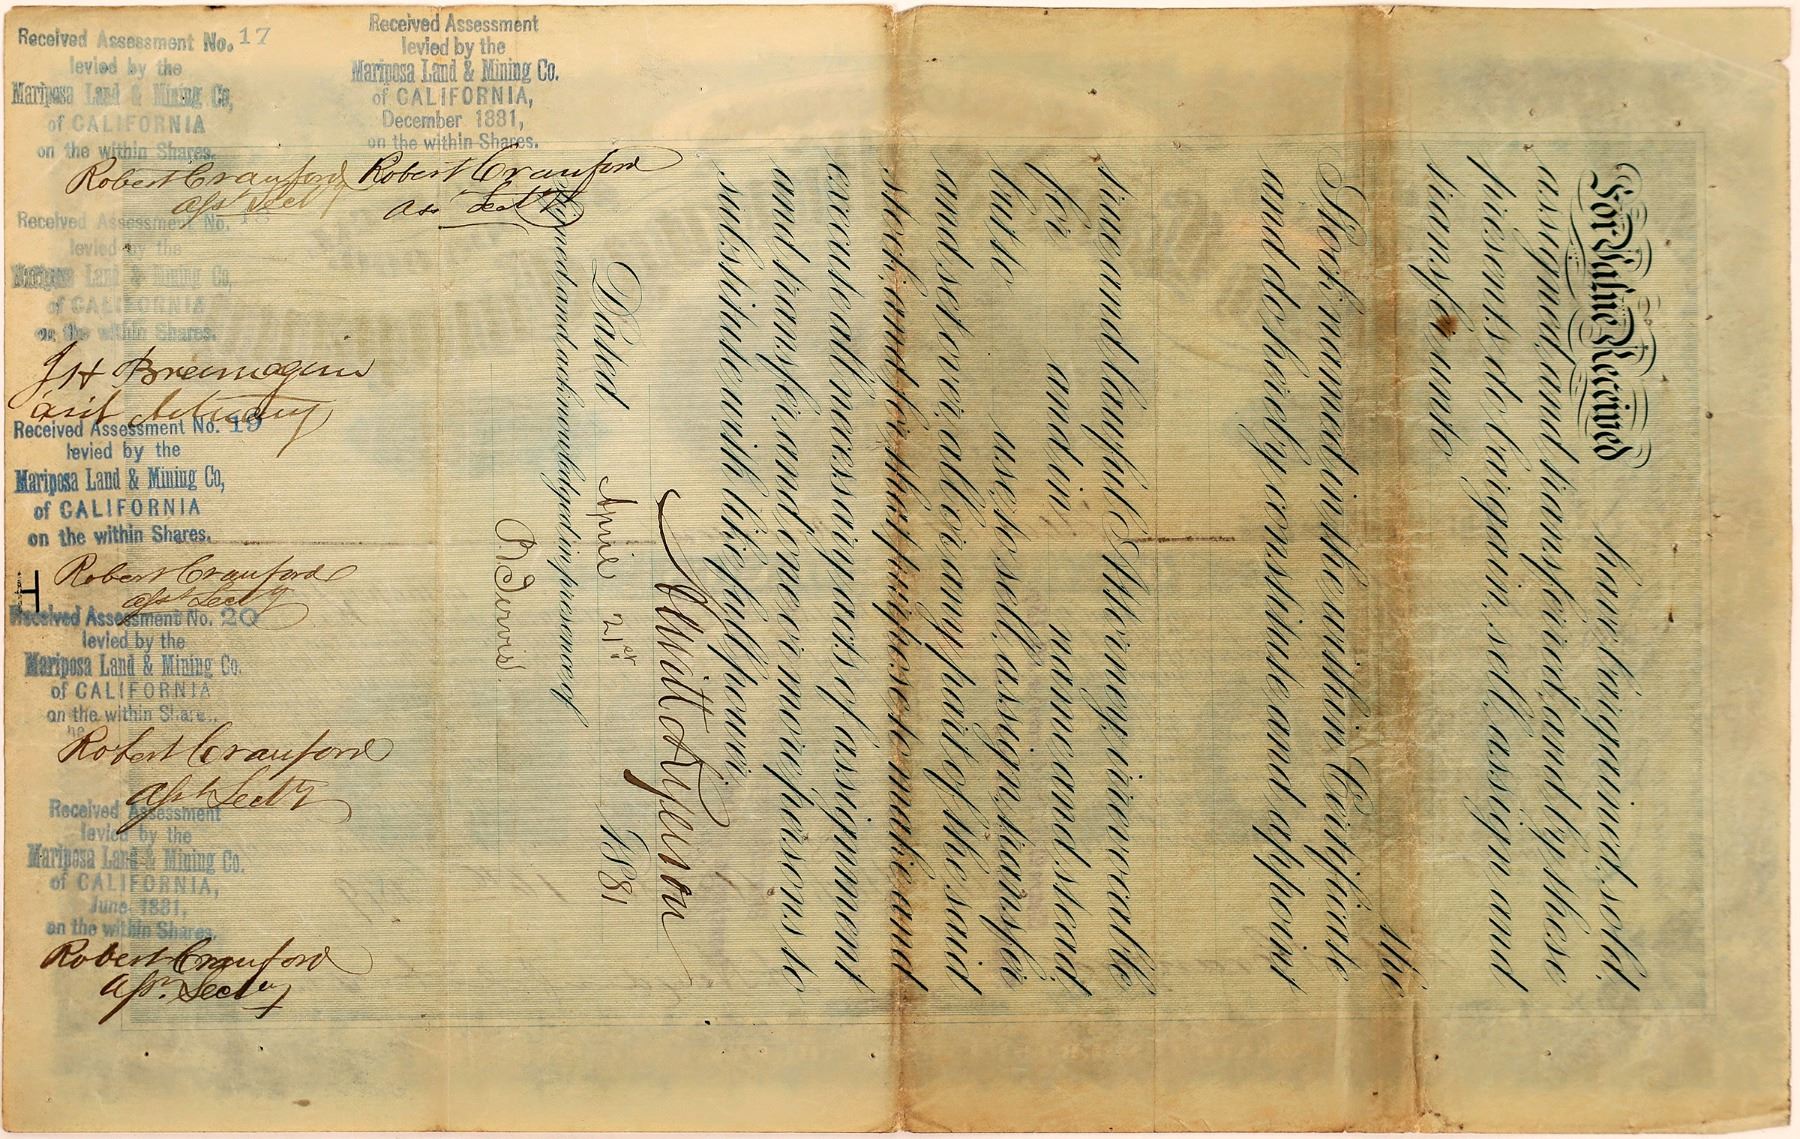 Received Assessment No. 17
levied by the
Mariposa Land & Mining Co,
of CALIFORNIA
on the within Shares.
Robert Cranford
Asst Secty
Received Assessment No. 18
levied by the
Mariposa Land & Mining Co,
of CALIFORNIA
on the within Shares.
J H
Asst
Received Assessment No. 19
levied by the
Mariposa Land & Mining Co,
of CALIFORNIA
on the within Shares.
Robert Cranford
Asst Secty
H
Received Assessment No. 20
levied by the
Mariposa Land & Mining Co.
of CALIFORNIA
on the within Share..
Robert Cranford
Asst Secty
Received Assessment
levied by the
Mariposa Land & Mining Co.
of CALIFORNIA,
June 1881,
on the within Shares,
Robert Cranford
Asst Secty
Received Assessment
levied by the
Mariposa Land & Mining Co.
of CALIFORNIA,
December 1881,
on the within Shares.
Robert Cranford
Ass Secty
For Value Received
have bargained, sold,
assigned and transferred, and by these
presents do bargain, sell, assign and
transfer unto
the
Stock named in the within Certificate
and do hereby constitute and appoint
true and lawful Attorney, irrevocable
for and in name and stead
but to use, to sell, assign, transfer
and set over, all or any part of the said
stock, and for that purpose to make and
execute all necessary acts of assignment
and transfer, and one or more persons to
substitute with like full power.
Dated April 21st 1881
ned and acknowledged in presence of